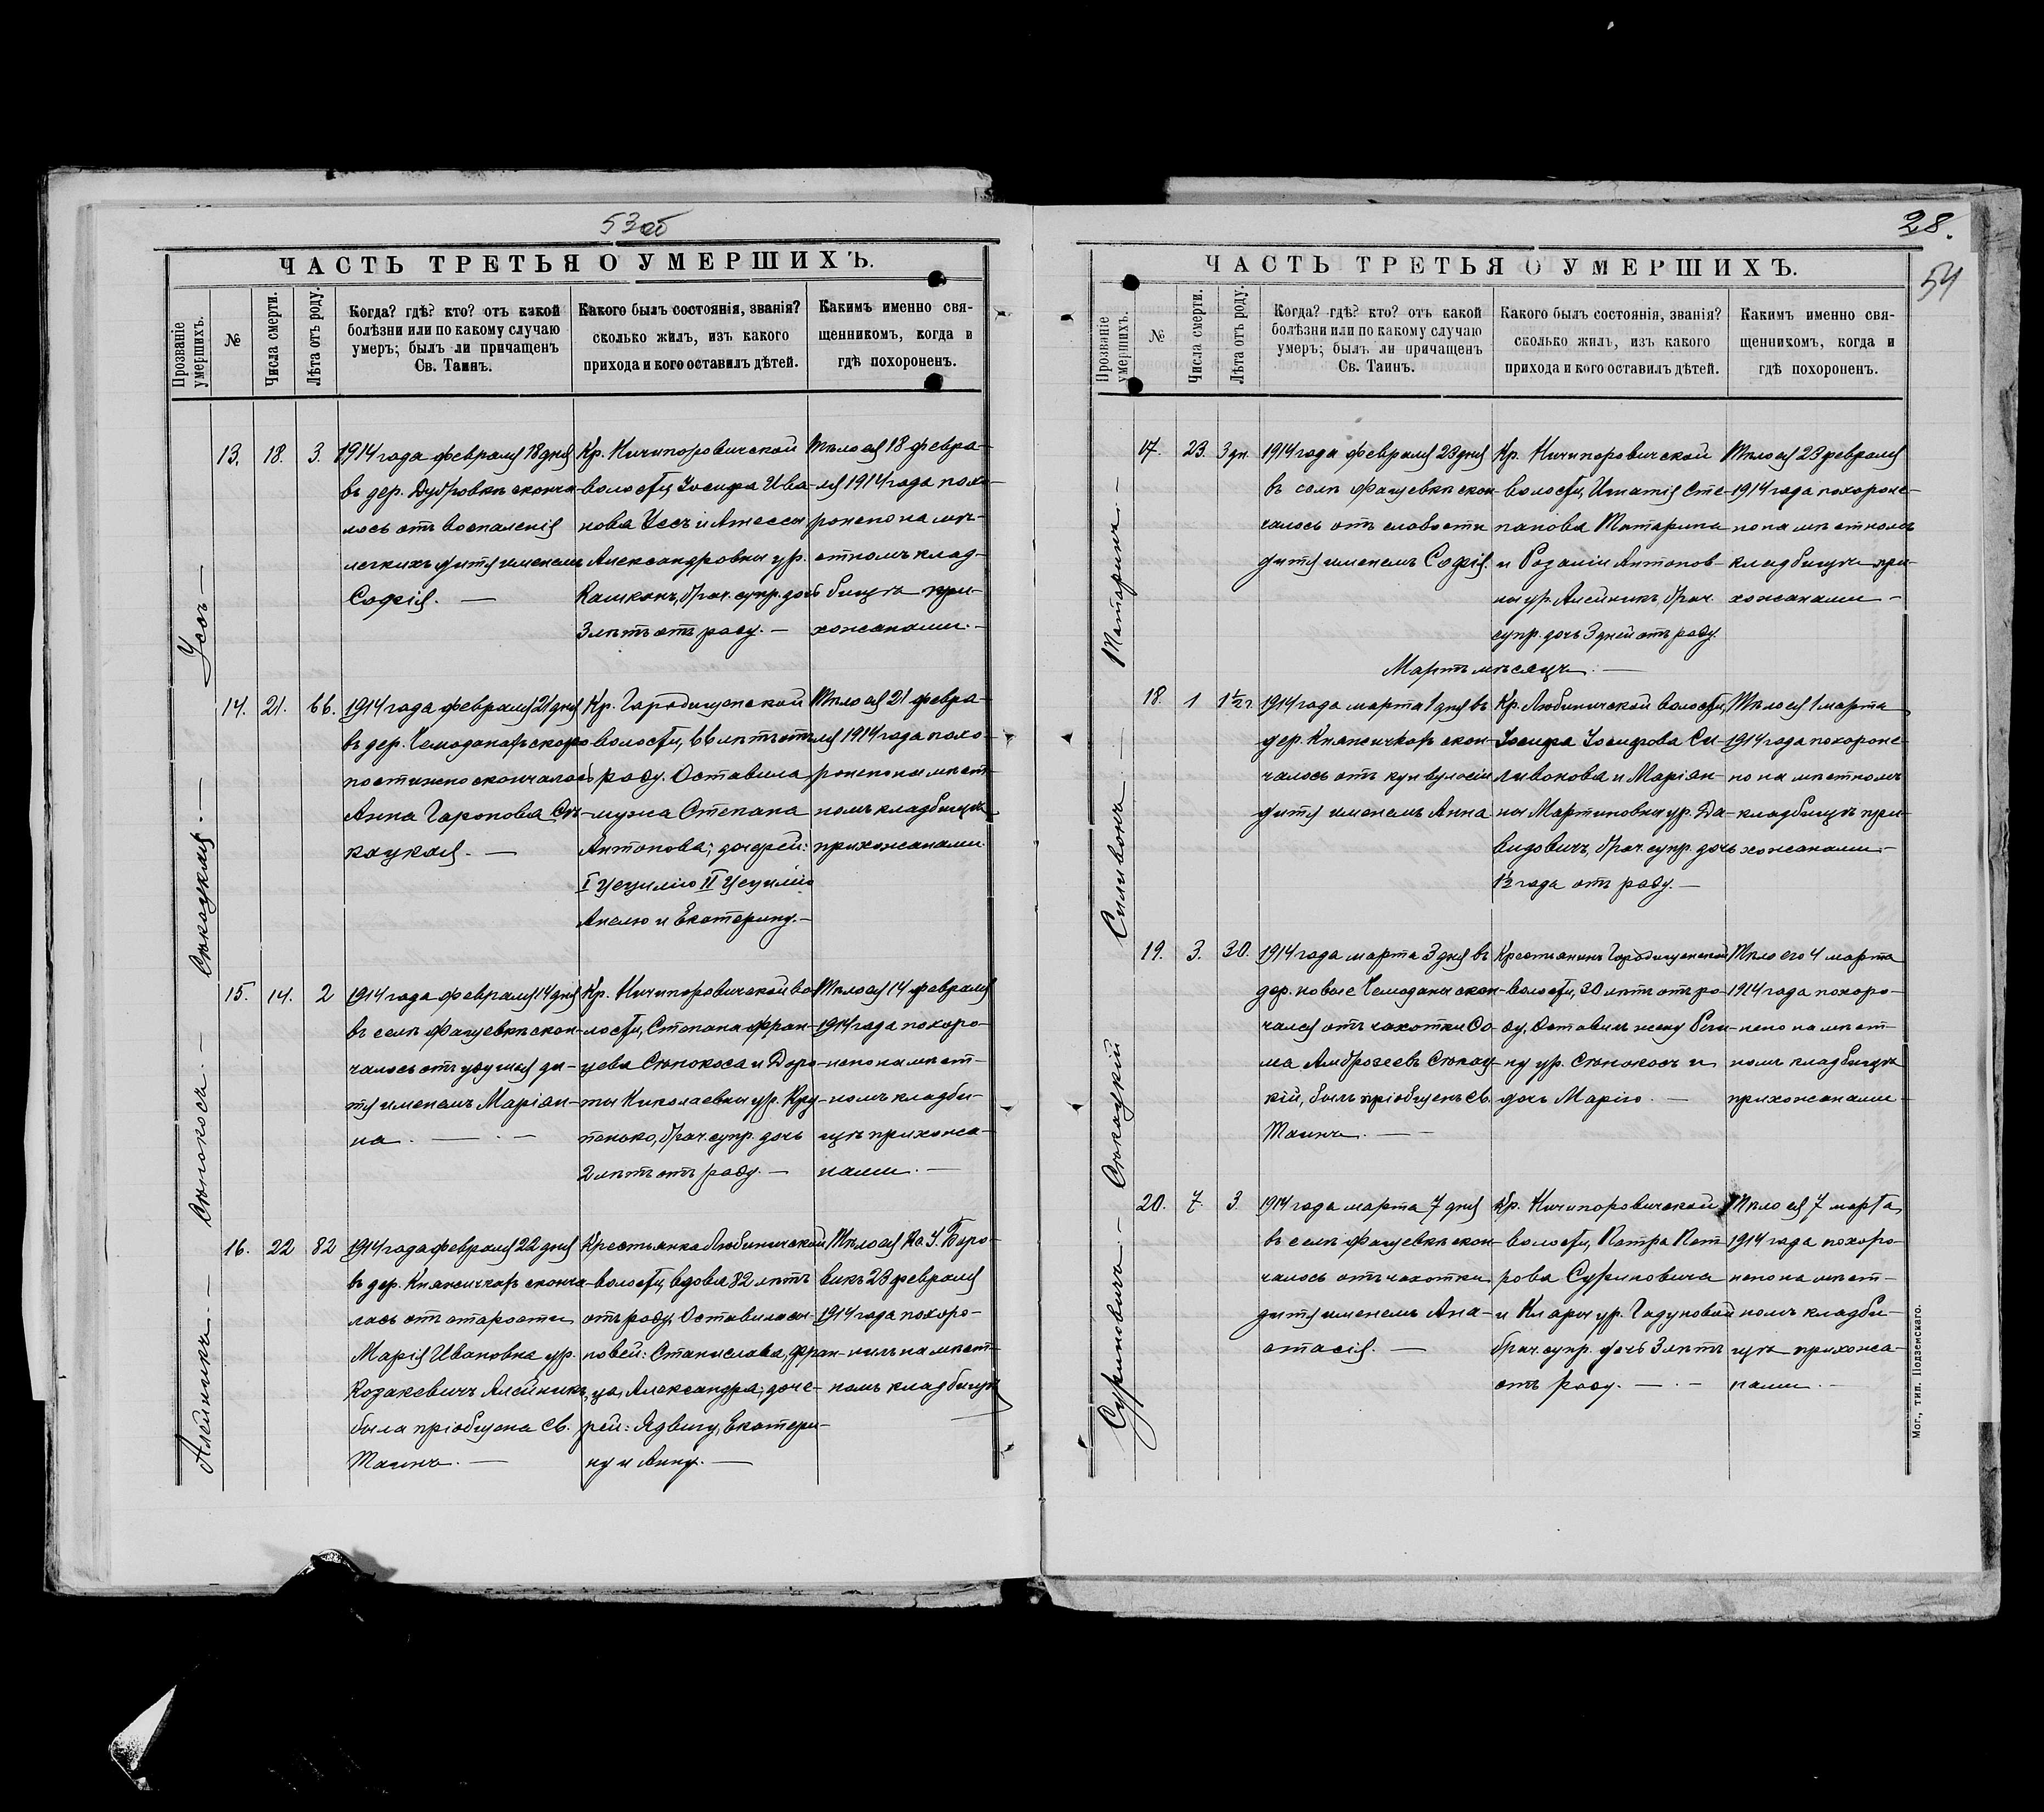 53 об
ЧАСТЬ ТРЕТЬЯ О УМЕРШИХЪ.
Прозваніе умершихъ.
№
Числа смерти.
Лѣта отъ роду.
Когда? гдѣ? кто? отъ какой
болѣзни или по какому случаю
умеръ; былъ ли причащенъ
Св. Таинъ.
Какого былъ состоянія, званія?
сколько жилъ, изъ какого
прихода и кого оставилъ дѣтей.
Какимъ именно свя-
щенникомъ, когда и
гдѣ похороненъ.
Усъ —
13. 18. 3.
1914 года февраля 18 дня
въ дер. Дубровкѣ сконча-
лось отъ воспаленія
легкихъ дитя именемъ
Софія. —
Кр. Ничипоровичской
волости, Іосифа Ива-
нова Усъ и Агнессы
Александровны ур.
брач. супр. дочь
3 лѣтъ отъ роду. —
Тѣло ея 18 февра-
ля 1914 года похо-
ронено на мѣ-
стномъ клад-
бищѣ при-
хожанами. —
Сѣкацкая. —
14. 21. 66.
1914 года февраля 21 дня
въ дер. Чемоданахъ скоро-
постижно скончалась
Анна Сѣ-
кацкая. —
Кр. Городищенской
волости, 66 лѣтъ отъ
роду. Оставила
мужа Степана
Антонова; дочерей:
I Уцилію II Уцилію
Анелю и Екатерину. —
Тѣло ея 21 февра-
ля 1914 года похо-
ронено на мѣст-
номъ кладбищѣ
прихожанами.
Сѣнокосъ. —
15. 14. 2
1914 года февраля 14 дня
въ селѣ Фащевкѣ скон-
чалось отъ удушья ди-
тя именемъ Маріан-
на. — . —
Кр. Ничипоровичской во-
лости, Степана Фран-
цева Сѣнокоса и Доро-
ты Николаевны ур. Кру-
пенько, брач. супр. дочь
2 лѣтъ отъ роду. —
Тѣло ея 14 февраля
1914 года похоро-
нено на мѣст-
номъ кладби-
щѣ прихожа-
нами. —
Алейникъ. —
16. 22 82
1914 года февраля 22 дня
въ дер. Княжичахъ сконча-
лась отъ старости
Марія Ивановна ур.
Козакевичъ Алейникъ,
была пріобщена Св.
Таинъ. —
Крестьянка Любиничской
волости, вдова 82 лѣтъ
отъ роду. Оставила сы-
новей: Станислава, Фран-
ца, Александра, доче-
рей: Ядвигу, Екатери-
ну и Анну. —
Тѣло ея Кс. У. Боро-
викъ 23 февраля
1914 года похоро-
нилъ на мѣст-
номъ кладбищѣ
28.
54
ЧАСТЬ ТРЕТЬЯ О УМЕРШИХЪ.
Прозваніе умершихъ.
№
Числа смерти.
Лѣта отъ роду.
Когда? гдѣ? кто? отъ какой
болѣзни или по какому случаю
умеръ; былъ ли причащенъ
Св. Таинъ.
Какого былъ состоянія, званія?
сколько жилъ, изъ какого
прихода и кого оставилъ дѣтей.
Какимъ именно свя-
щенникомъ, когда и
гдѣ похороненъ.
17. 23. 3 дн.
1914 года февраля 23 дня
въ селѣ Фащевкѣ скон-
чалось отъ слабости
дитя именемъ Софія.
Кр. Ничипоровичской
волости, Игнатія Сте-
панова
и Розаліи Антонов-
ны ур. Алейникъ, брач.
супр. дочь 3 дней отъ роду.
Тѣло ея 23 февраля
1914 года похороне-
но на мѣстномъ
кладбищѣ при-
хожанами —
Мартъ мѣсяцъ. —
Силивонъ —
18. 1 1½ г
1914 года марта 1 дня въ
дер. Княжичахъ скон-
чалось отъ
дитя именемъ Анна
Кр. Любиничской волости,
Іосифа Іосифова Си-
ливонова и Маріан-
ны Мартиновны ур. Да-
видовичъ, брач. супр. дочь
1½ года отъ роду. —
Тѣло ея 1 марта
1914 года похороне-
но на мѣстномъ
кладбищѣ при-
хожанами. —
Сѣкацкій
19. 3. 30.
1914 года марта 3 дня въ
дер. новые Чемоданы скон-
чался отъ чахотки Со-
ма Амброзеевъ Сѣкац-
кій, былъ пріобщенъ Св.
Таинъ. —
Крестьянинъ Городищенской
волости, 30 лѣтъ отъ ро-
ду. Оставилъ жену
ур. Сѣнокосъ и
дочь Марію. —
Тѣло его 4 марта
1914 года похоро-
нено на мѣст-
номъ кладбищѣ
прихожанами —
Суриновичъ. —
20. 7. 3
1914 года марта 7 дня
въ селѣ Фащевкѣ скон-
чалось отъ чахотки
дитя именемъ Ана-
стасія. —
Кр. Ничипоровичской
волости, Петра Пет-
рова Суриновича
и Клары ур. Гадуновой
брач. супр. дочь 3 лѣтъ
отъ роду. — . —
Тѣло ея 7 марта
1914 года похоро-
нено на мѣст-
номъ кладби-
щѣ прихожа-
нами. —
Мог., тип. Подземскаго.